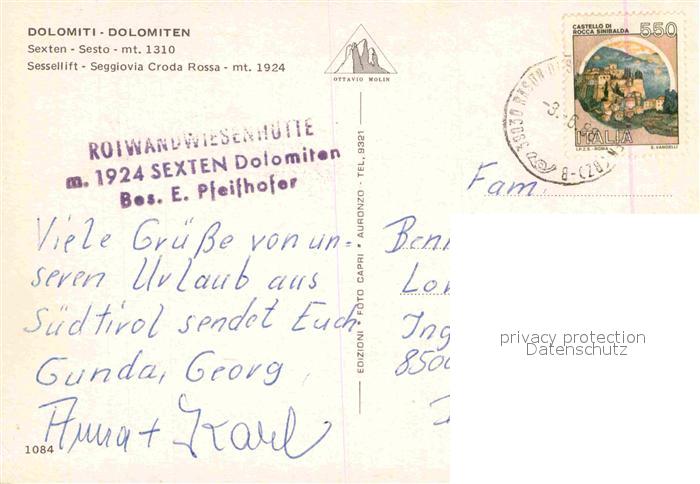 DOLOMITI - DOLOMITEN
Sexten - Sesto - mt. 1310
Sessellift - Seggiovia Croda Rossa - mt. 1924
OTTAVIO MOLIN
CASTELLO DI
ROCCA SINIBALDA
550
ITALIA
I.P.Z.S. - ROMA
E. VANGELLI
39030 RASUN
(BZ)-B
ROTWANDWIESENHÜTTE
m. 1924 SEXTEN Dolomiten
Bes. E. Pfeifhofer
Fam.
Viele Grüße von un=
seren Urlaub aus
Südtirol sendet Euch
Gunda, Georg
Anna + Karl
EDIZIONI FOTO CAPRI * AURONZO - TEL. 9321
Ben
Lo
Ing
850
privacy protection
Datenschutz
1084